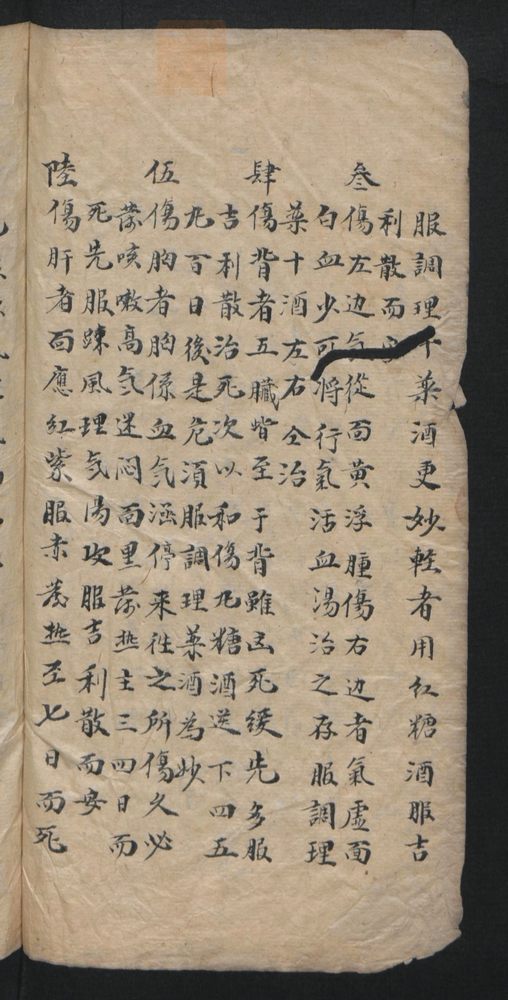 服調理藥酒更妙軽者用紅糖酒服吉
利散而
叁傷左边气從面黃浮腫傷右边者氣虚面
白血少可將行氣活血湯治之存服調理
藥十酒左右仝治
肆傷背者五臟皆至于背雖凶死緩先多服
吉利散治死次以和傷九糖酒送下四五
九百日後是危湏服調理藥酒為妙
伍傷胸者胸係血气涵停来往之所傷久必
咳嗽高气迷闷面里热主三四日而
死先服踈風理气湯次服吉利散而安
陸傷肝者面應红紫服赤热至七日而死